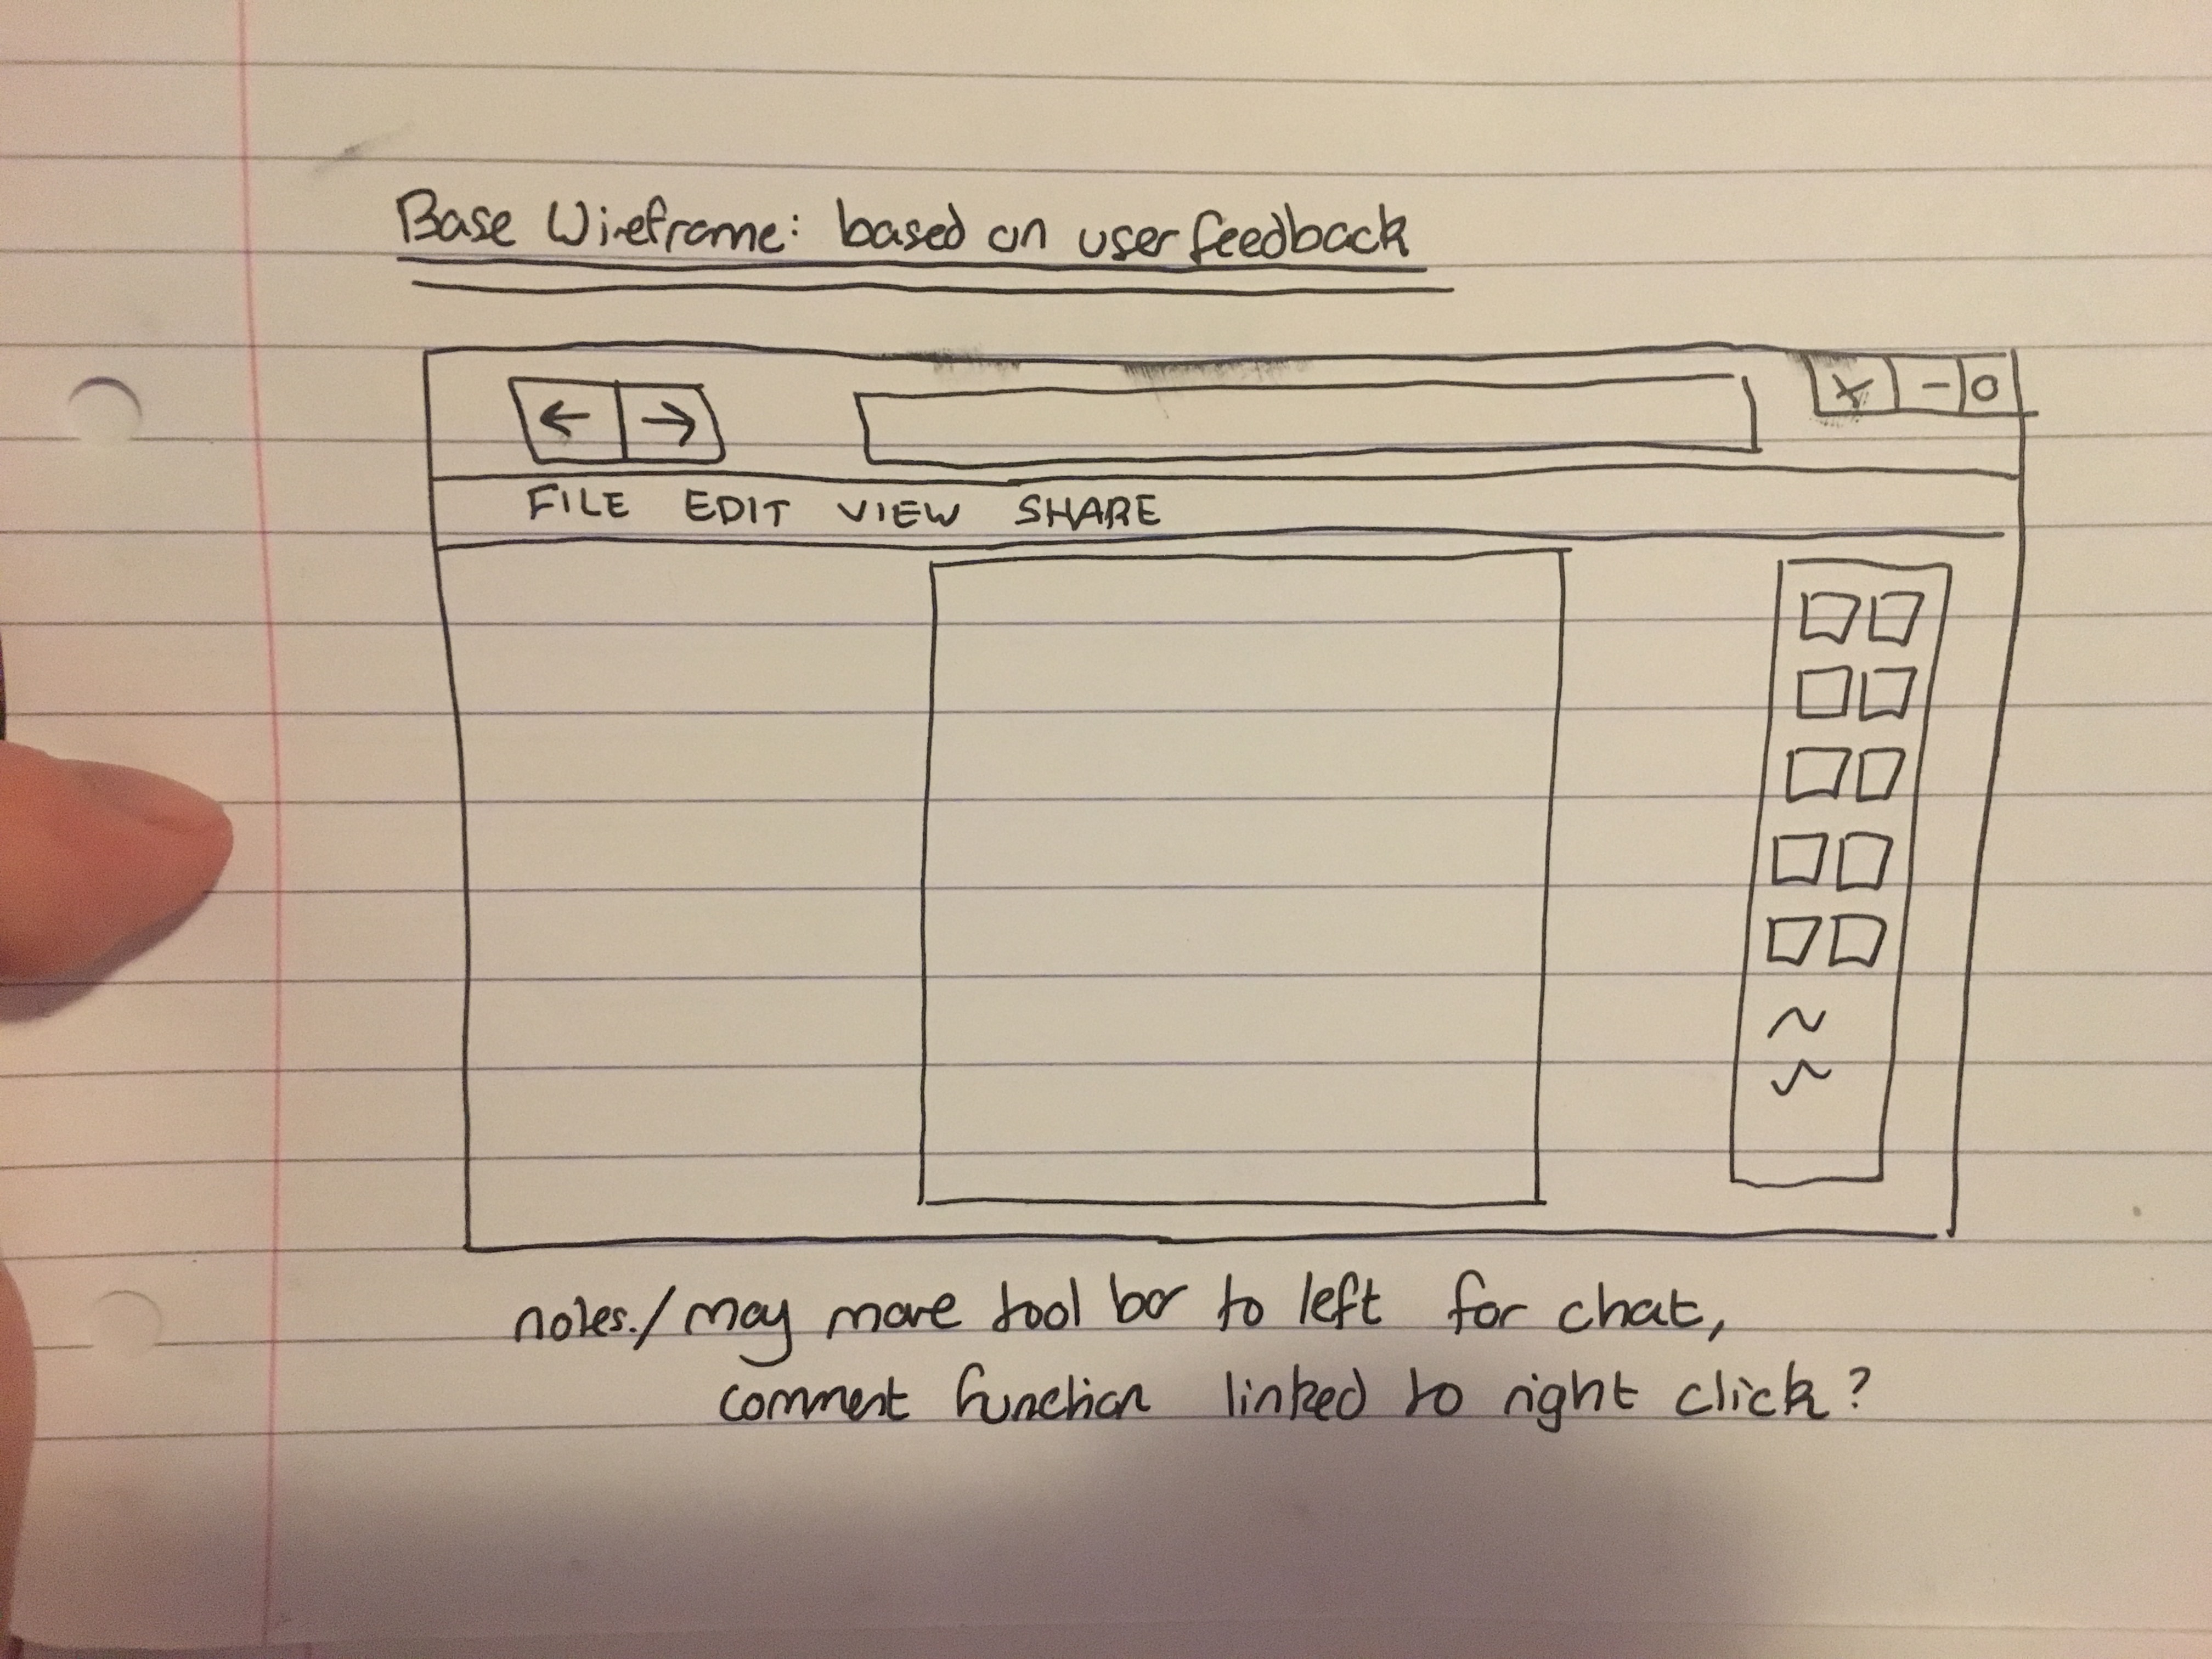 Base Wireframe: based on user feedback
← → X - O
FILE EDIT VIEW SHARE
notes./ may move tool bar to left for chat,
comment function linked to right click?